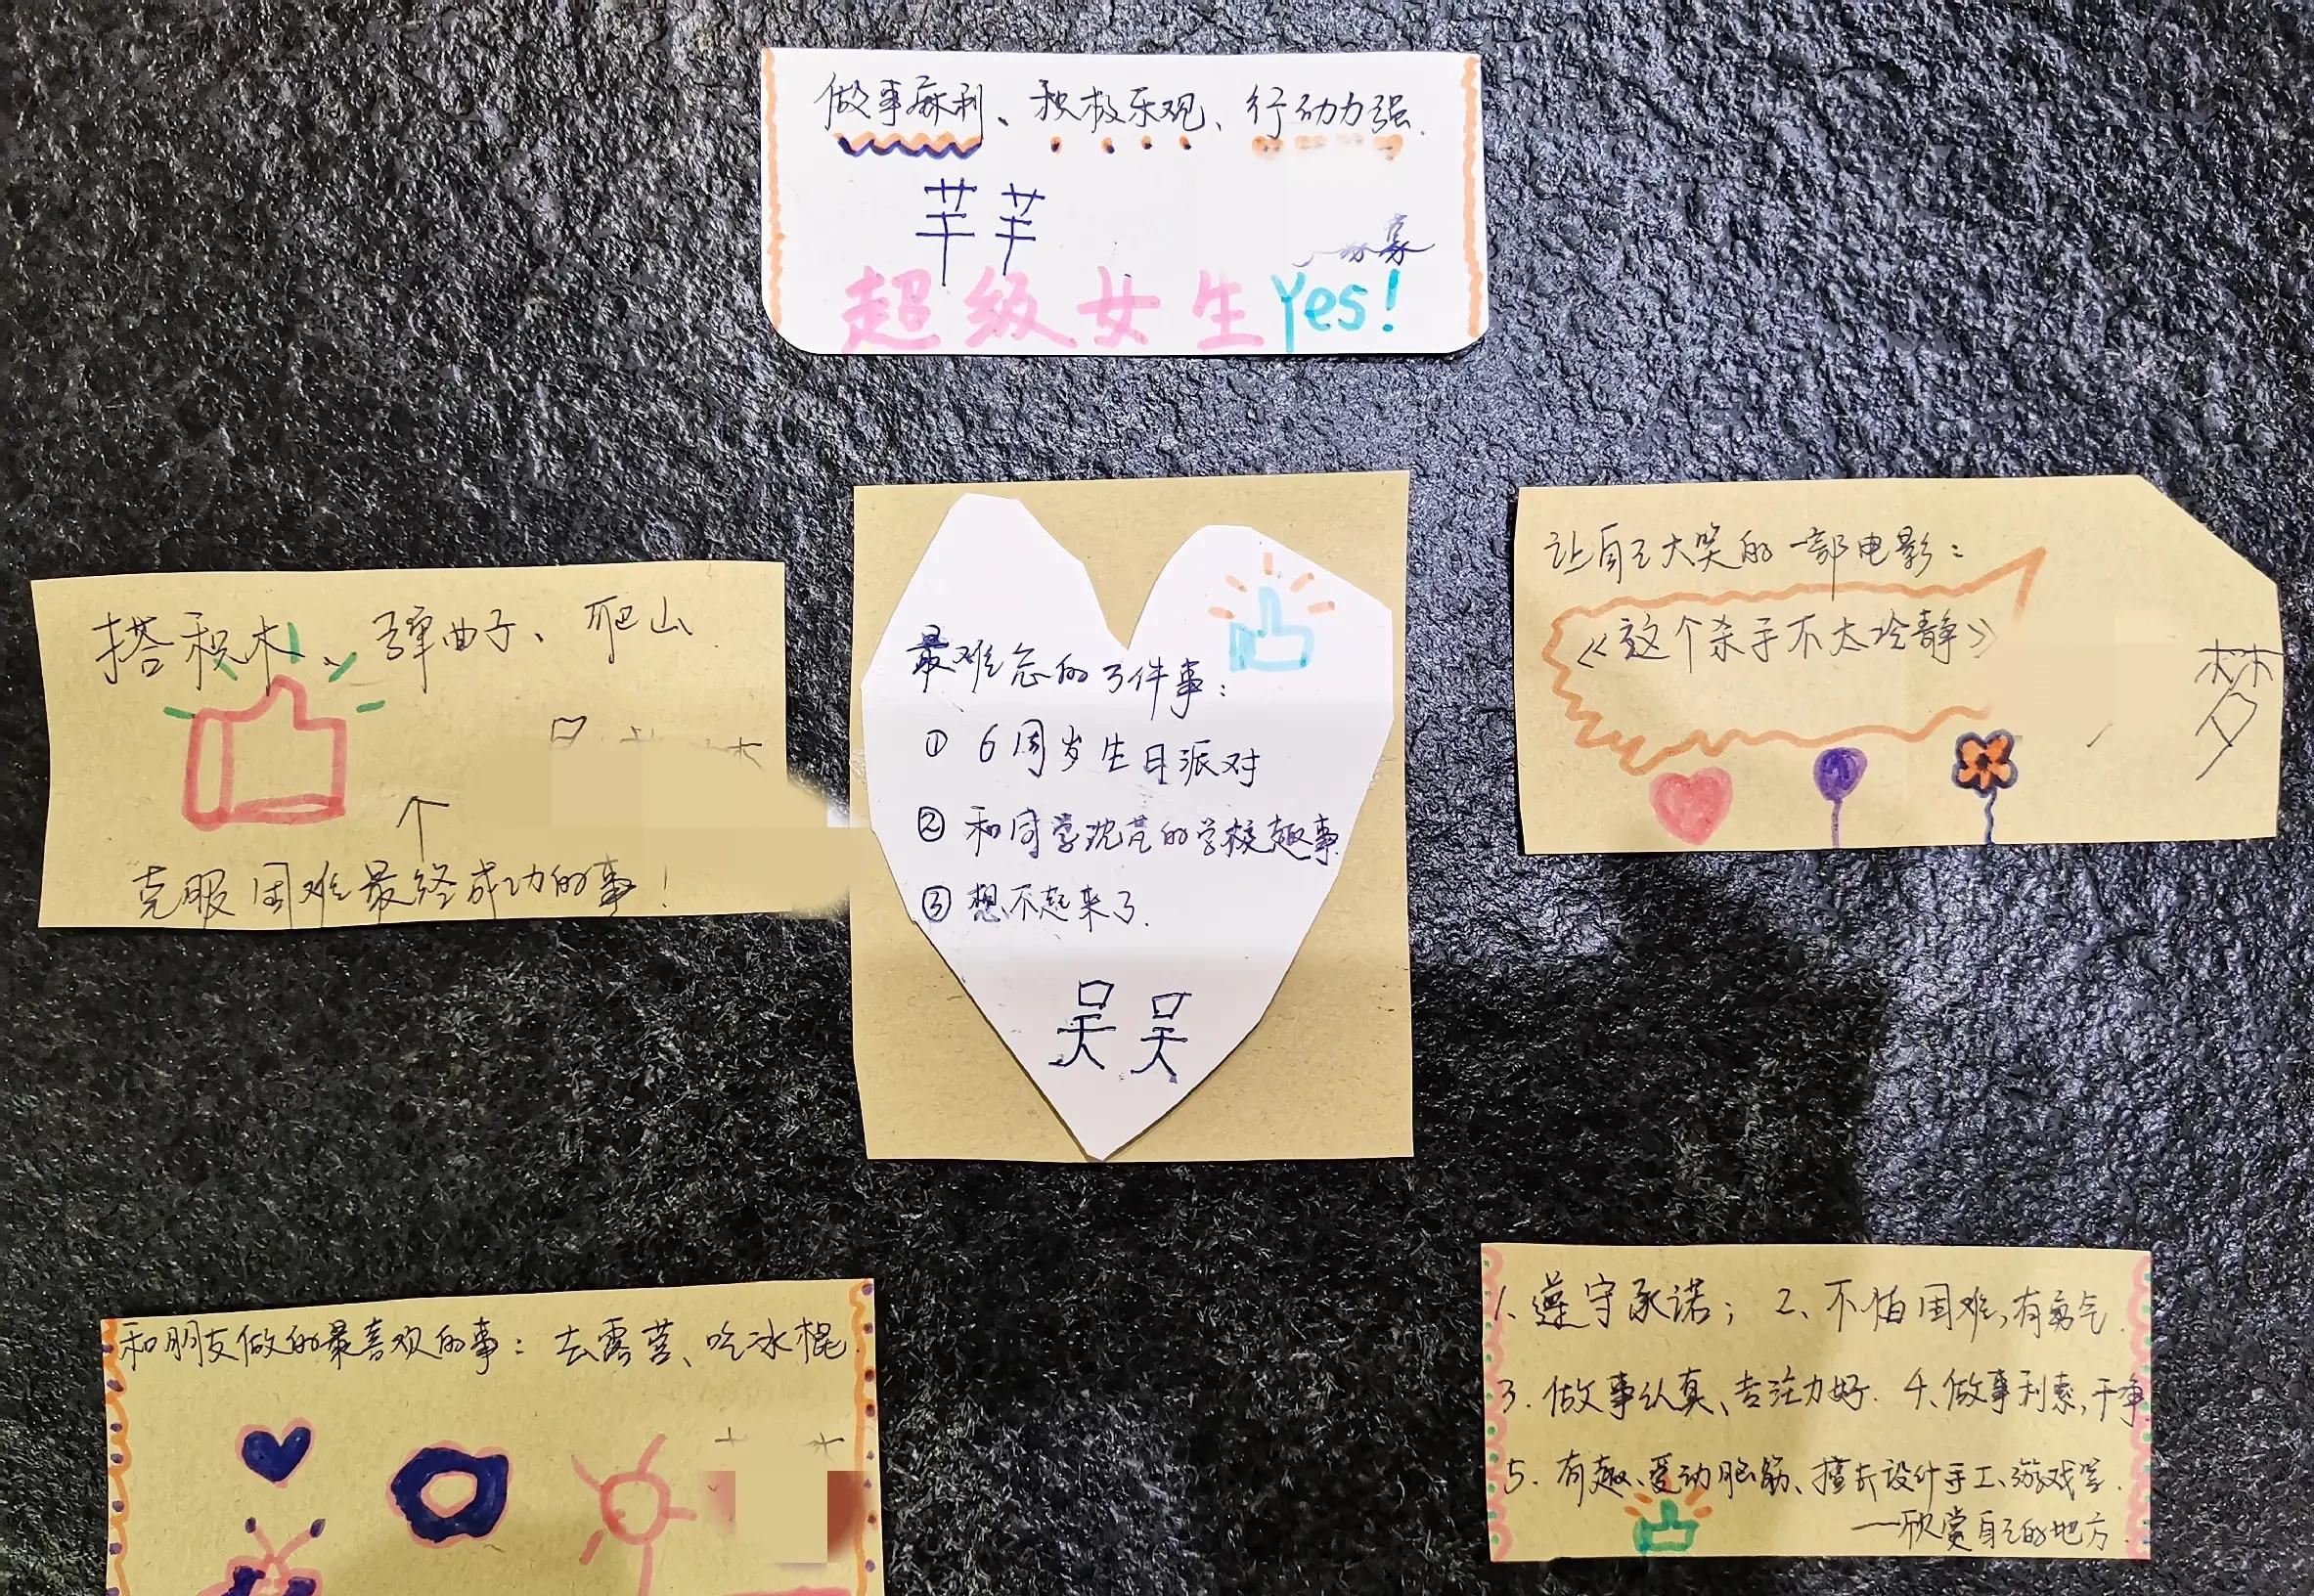 做事麻利、积极乐观、行动力强.
芊芊
超级女生Yes!
搭积木、弹曲子、爬山
克服困难最终成功的事!
最难忘的3件事:
① 6周岁生日派对
② 和同学沈芑的学校趣事
③ 想不起来了.
吴吴
让自己大笑的一部电影:
《这个杀手不太冷静》
梦
和朋友做的最喜欢的事: 去露营、吃冰棍.
1、遵守承诺; 2、不怕困难,有勇气.
3. 做事认真、专注力好. 4、做事利索,干净
5. 有趣、爱动脑筋、擅长设计手工、游戏等.
——欣赏自己的地方.